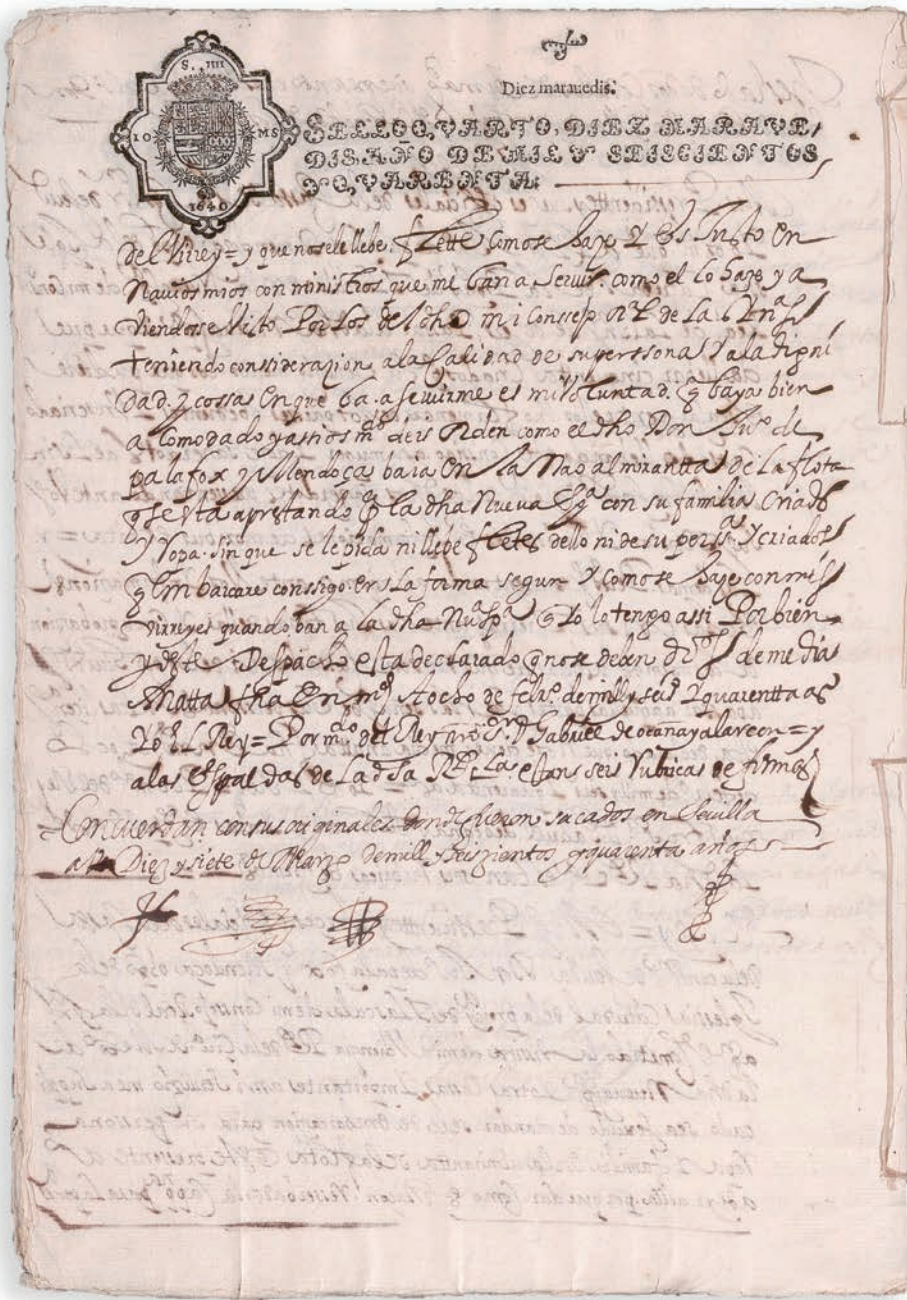 S. IIII
10 MS
1640
Diez marauedis.
SELLO QVARTO, DIEZ MARAVE/
DIS, AÑO DE MIL Y SEISCIENTOS
Y QVARENTA:
del Virrey = y que no se le llebe flette como se haze y es Justo en
Nauios mios con ministros que me ban a Seruir. como el lo haze y a
viendosse Visto Por los del dho mi Conssejo Rl de las Yns
teniendo considerazion a la Calidad de su perssona Y a la digni
dad y cossa en que ba a seruirme es mi Voluntad. q baya bien
acomodado y assi os mdo deis orden como el dho Don Juo de
palafox y Mendoça baia en la Nao almirantta de la flota
q se esta aprestando pa la dha Nueua Espa con su familia Criados
y Ropa. sin que se le pida ni llebe fletes dello ni de su persa Y criados
q embarcare conssigo en la forma segun Y como se haze con mis
virreyes quando ban a la dha Nu Espa q Yo lo tengo assi Por bien
y deste Despacho esta declarado q no se deben dros de media
Anatta fha en Md A ocho de febro de mill y seiso y quarentta as
Yo El Rey = Por mdo del Rey nro sr D Gabriel de ocaña y alarcon = y
a las espaldas de la dha Rl Cla estan seis Rubricas de firmas
Concuerdan con sus originales donde fueron sacados en Seuilla
a Diez y siete de Março de mill y seiszientos y quarenta años